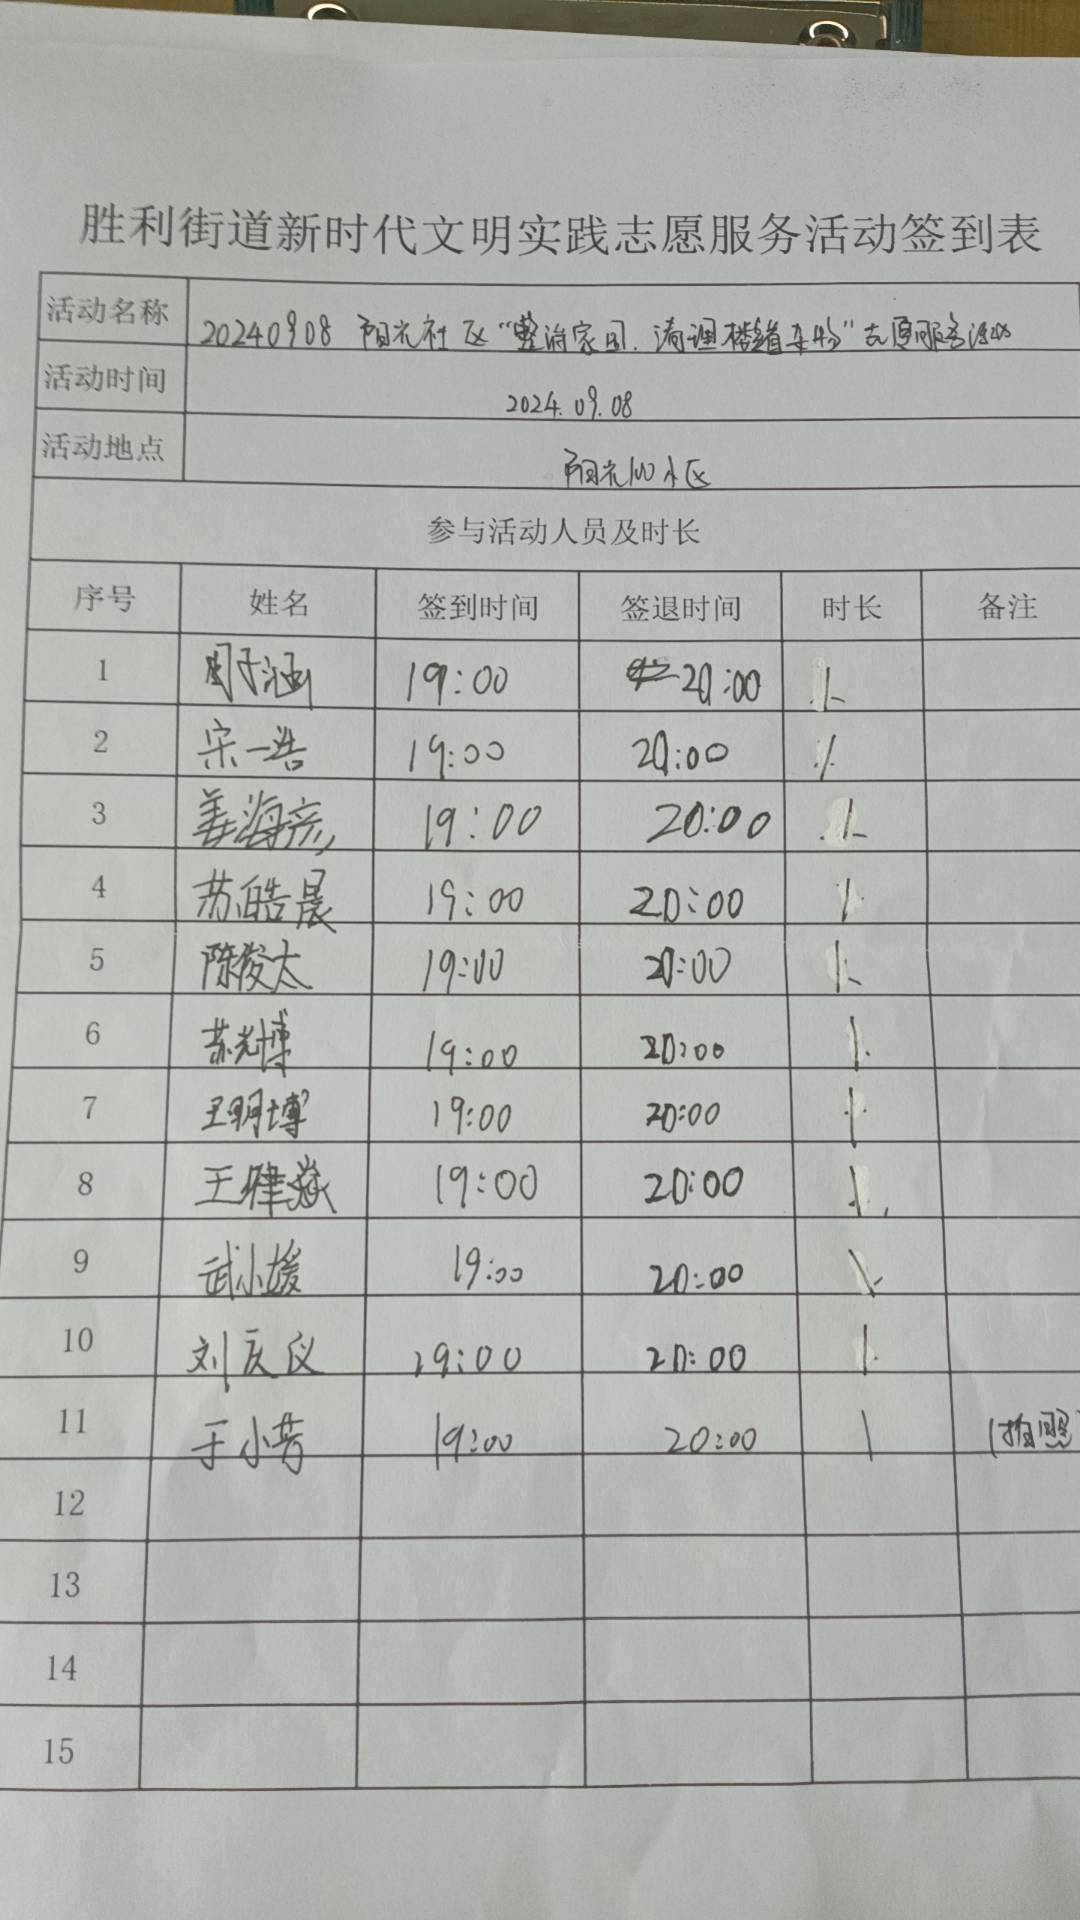 胜利街道新时代文明实践志愿服务活动签到表
活动名称 20240908 阳光社区“整治家园、清理楼道杂物”志愿服务活动
活动时间 2024.09.08
活动地点 阳光100小区
参与活动人员及时长
序号 姓名 签到时间 签退时间 时长 备注
1 周子涵 19:00 20:00 1
2 宋一浩 19:00 20:00 1
3 姜海彦 19:00 20:00 1
4 苏皓晨 19:00 20:00 1
5 陈俊太 19:00 20:00 1
6 苏光博 19:00 20:00 1
7 王明博 19:00 20:00 1
8 王肆焱 19:00 20:00 1
9 武小媛 19:00 20:00 1
10 刘庆仪 19:00 20:00 1
11 于小芳 19:00 20:00 1 (拍照
12
13
14
15